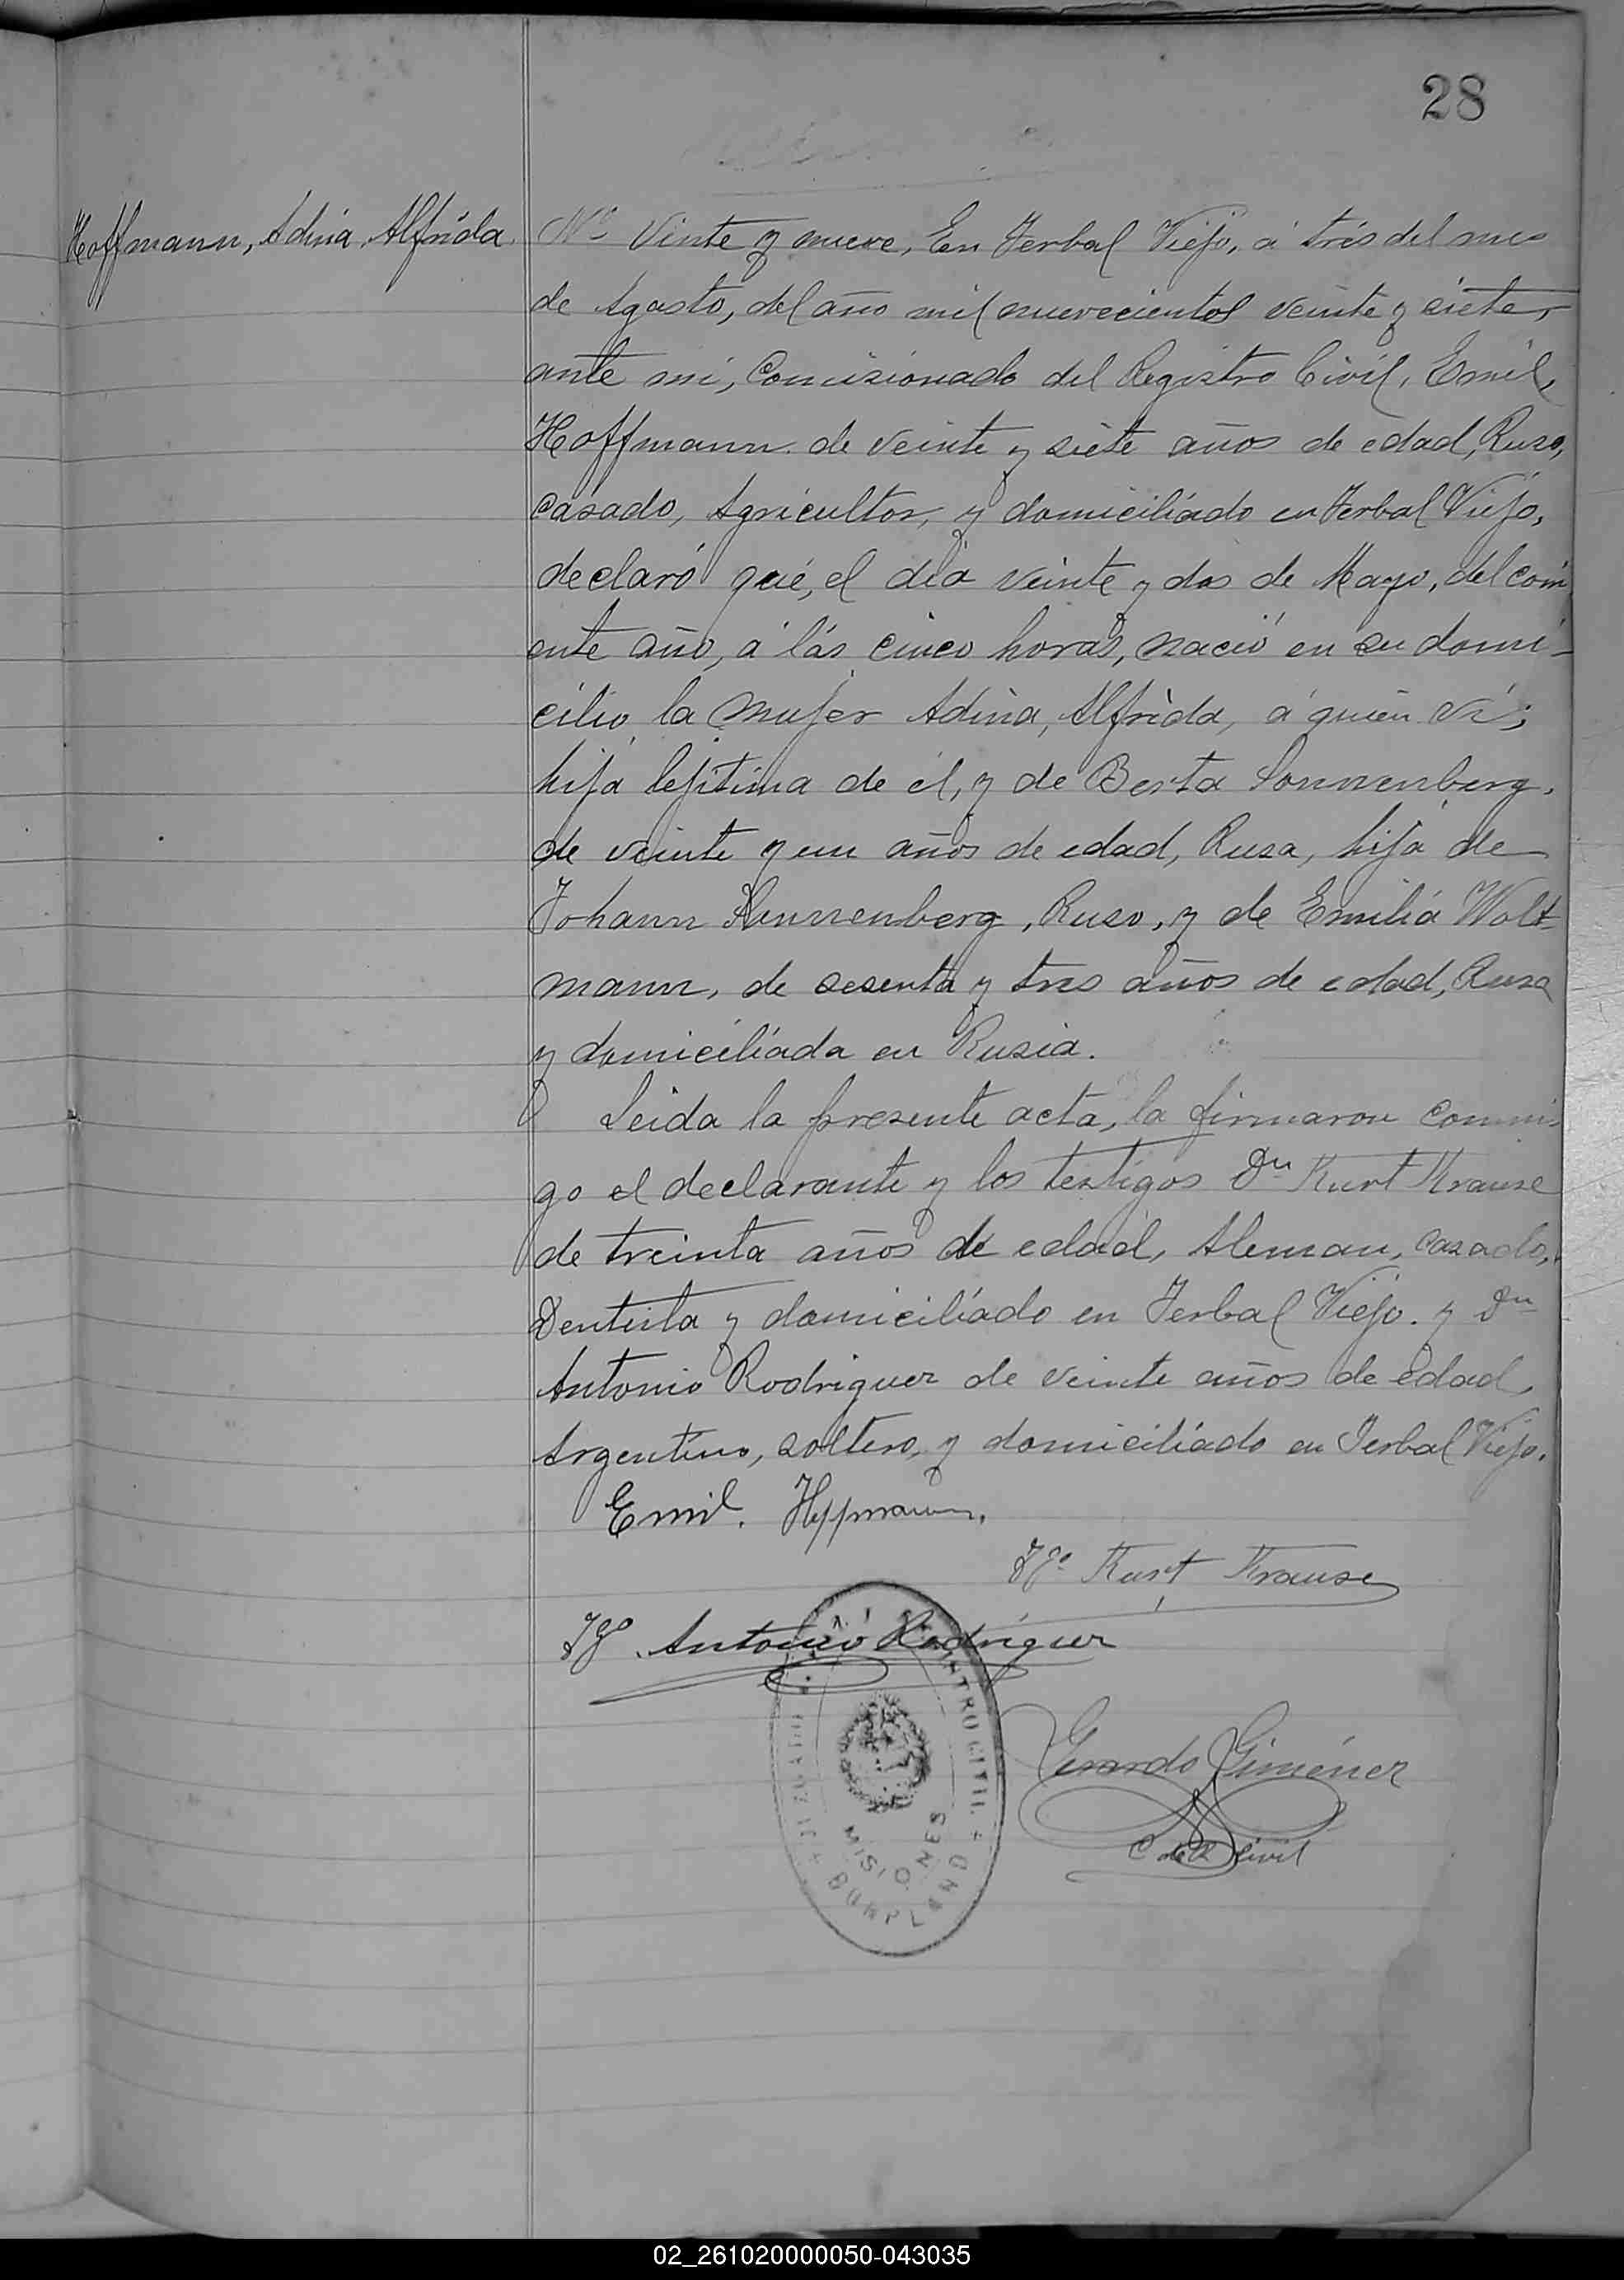 28
Hoffmann, Adina Alfrida.
Nº Vinte y nueve, En Yerbal Viejo, á trés del mes
de Agosto, del año mil nuevecientos veinte y siete,
ante mi, Comisionado del Registro Civil, Emil,
Hoffmann de veinte y siete años de edad, Ruso,
casado, Agricultor, y domiciliádo en Yerbal Viejo,
declaró qué, el dia veinte y dos de Mayo, del corri
ente año, á lás cinco horas, nació en su domi-
cilio la mujer Adina, Alfrida, á quien ví;
hija lejitima de él, y de Berta Sonnenberg,
de veinte y un años de edad, Rusa, hija de
Johann Sonnenberg, Ruso, y de Emilia Wolt-
mann, de sesenta y tres años de edad, Rusa
y domiciliáda en Rusia.
Leida la presente acta, la firmaron conmi-
go el declarante y los testigos Dn Kurt Krause
de treinta años de edad, Aleman, casado,
Dentista y domiciliádo en Yerbal Viejo. y Dn
Antonio Rodriguez de veinte años de edad,
Argentino, soltero, y domiciliádo en Yerbal Viejo.
Emil. Hoffmann.
Tgo Kurt Krause
Tgo. Antonio Rodriguez
MISIONES
BONPLAND
Gerardo Giménez
C de R Civil
02_261020000050-043035